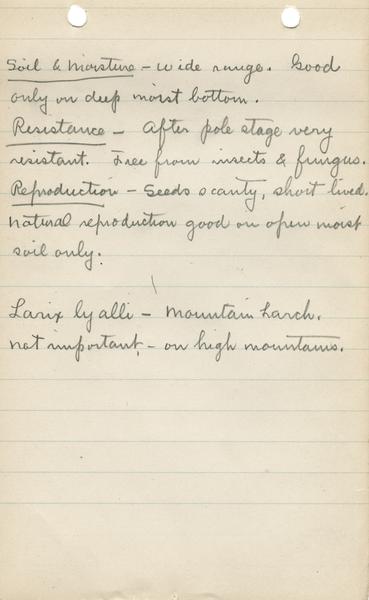 Soil & Moisture - wide range. Good
only on deep moist bottom.
Resistance - After pole stage very
resistant. Free from insects & fungus.
Reproduction - Seeds scanty, short lived.
Natural reproduction good on open moist
soil only.
Larix lyalli - Mountain Larch.
not important - on high mountains.